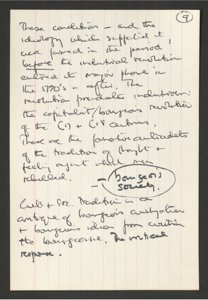 9
These conditions – and the
ideology which supplied it,
were formed in the period,
before the industrial revolution
entered its major phase in
the 1790's + after. The
revolution predates industrialism:
the capitalist/bourgeois revolution
of the C17 + C18 centuries.
These are the formative antecedents
of the tradition of thought +
feeling against which men
rebelled.
– bourgeois
society.
Cult + Soc. Tradition is a
critique of bourgeois civilization
+ bourgeois ideas from within
the bourgeoisie. The critical
response.